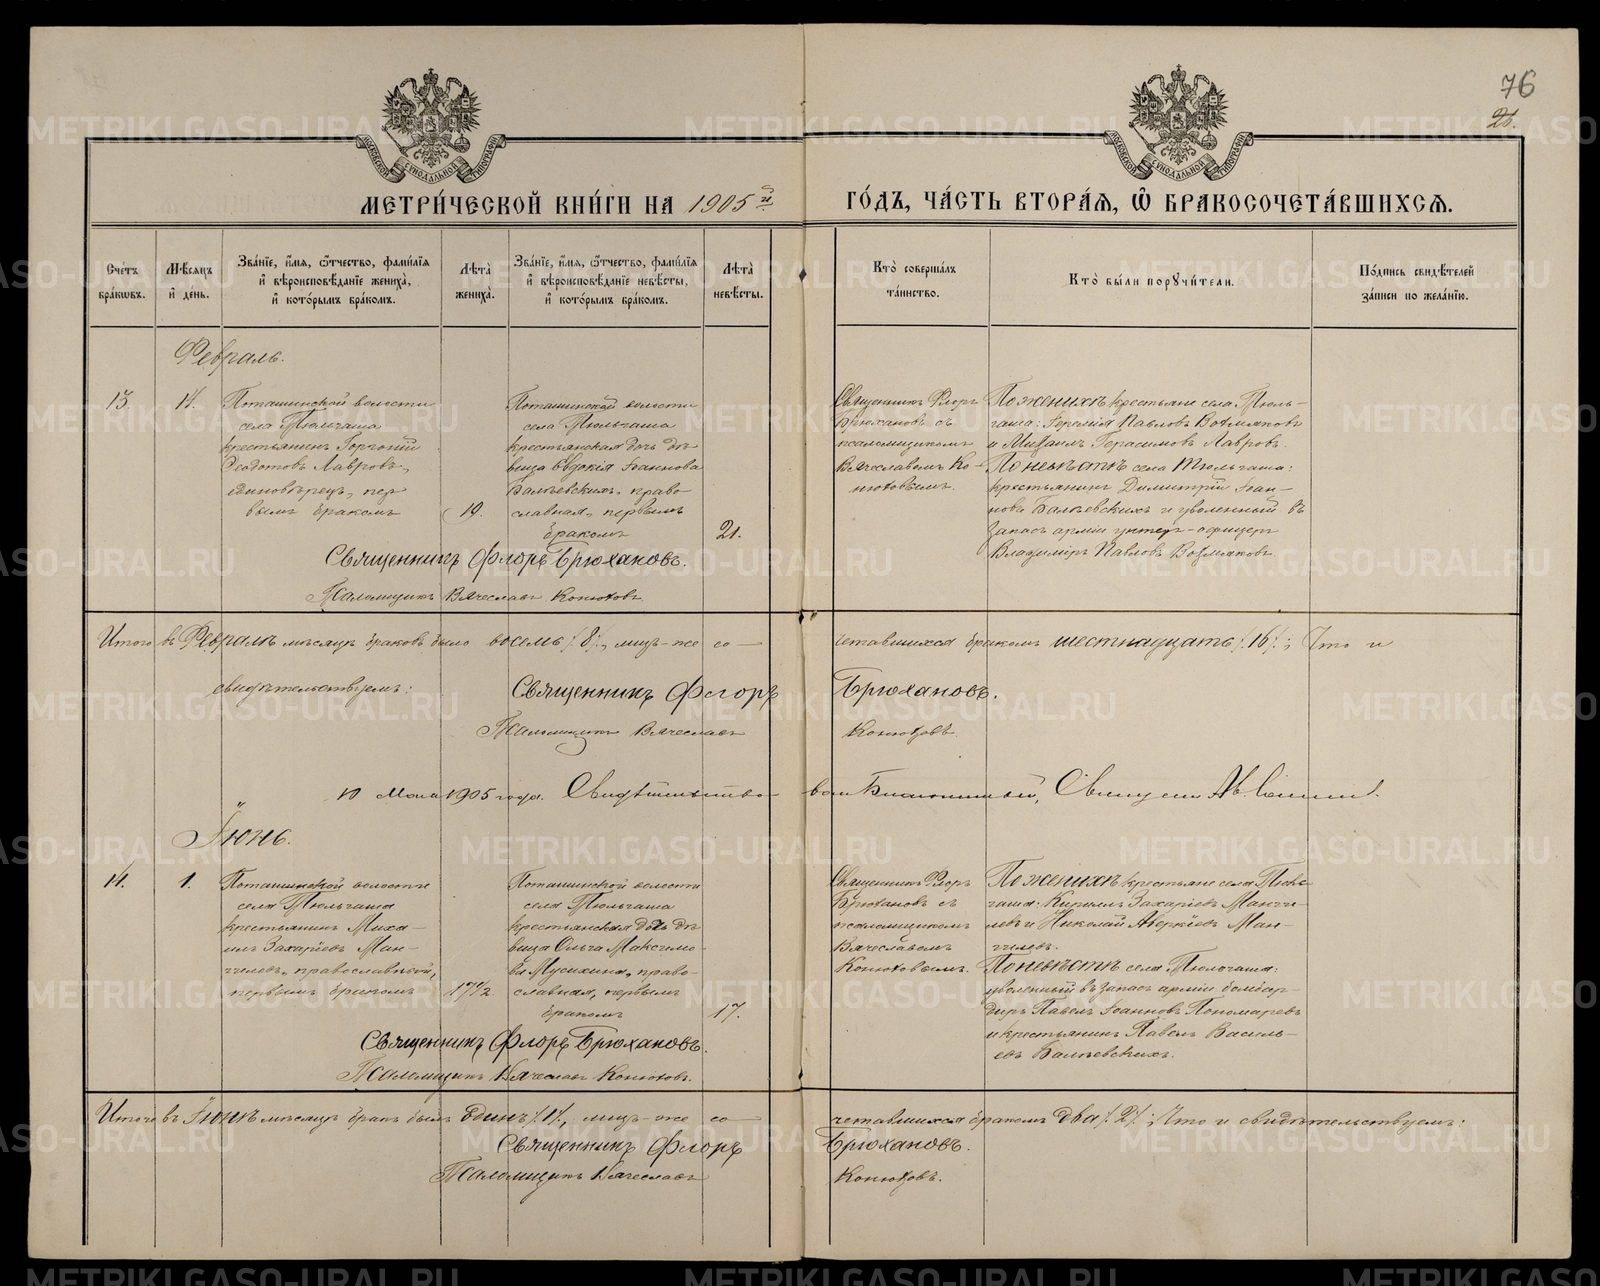 76
26.
МЕТРИ́ЧЕСКОЙ КНИ́ГИ НА 1905 й
ГО́ДЪ, ЧА́СТЬ ВТОРА́Я, Ѡ БРАКОСОЧЕТА́ВШИХСЯ.
Сче́тъ бра́кѡвъ.
Мѣ́сяцъ и҆ де́нь.
Зва́нїе, и҆́мя, ѻ҆́тчество, фамі́лїя и҆ вѣроисповѣ́данїе жениха̀, и҆ кото́рымъ бра́комъ.
Лѣ́та жениха̀.
Зва́нїе, и҆́мя, ѻ҆́тчество, фамі́лїя и҆ вѣроисповѣ́данїе невѣ́сты, и҆ кото́рымъ бра́комъ.
Лѣ́та невѣ́сты.
Кто̀ соверша́лъ та́инство.
Кто̀ бы́ли порꙋчи́тели.
По́дпись свидѣ́телей за́писи по жела́нїю.
Февраль.
13.
14.
Поташинской волости
села Тюльгаша
крестьянинъ Георгий
Феодотовъ Лавровъ,
единовѣрецъ, пер
вымъ бракомъ
19.
Поташинской волости
села Тюльгаша
крестьянская дочь дѣ
вица Евдокія Іоаннова
Балѣевскихъ, право
славная, первымъ
бракомъ
21.
Священникъ Флоръ
Брюхановъ съ
псаломщикомъ
Вячеславомъ Ко-
нюховымъ.
По женихѣ крестьяне села Тюль-
гаша: Іеремія Павловъ Возмяковъ
и Михаилъ Герасимовъ Лавровъ.
По невѣстѣ села Тюльгаша:
крестьянинъ Димитрій Іоан-
новъ Балѣевскихъ и уволенный въ
запасъ арміи унтеръ-офицеръ
Владиміръ Павловъ Возмяковъ.
Священникъ Флоръ Брюхановъ.
Псаломщикъ Вячеславъ Конюховъ
Итого въ Февралѣ мѣсяцѣ браковъ было восемь /8/, лицъ-же со-
четавшихся бракомъ шестнадцать /16/; Что и
свидѣтельствуемъ:
Священникъ Флоръ Брюхановъ.
Псаломщикъ Вячеславъ Конюховъ.
10 Мая 1905 года. Свидѣтельство
Іюнь.
14.
1.
Поташинской волости
села Тюльгаша
крестьянинъ Миха-
илъ Захаріевъ Ман-
чилевъ, православный,
первымъ бракомъ
17½
Поташинской волости
села Тюльгаша
крестьянская дочь дѣ
вица Ольга Максимо-
ва Мусихина, право-
славная, первымъ
бракомъ
17.
Священникъ Флоръ
Брюхановъ съ
псаломщикомъ
Вячеславомъ
Конюховымъ.
По женихѣ крестьяне села Тюль-
гаша: Кириллъ Захаріевъ Манчи-
левъ и Николай Аверкіевъ Ман-
чилевъ.
По невѣстѣ села Тюльгаша:
уволенный въ запасъ арміи бомбар-
диръ Павелъ Іоанновъ Пономаревъ
и крестьянинъ Павелъ Василь-
евъ Балѣевскихъ.
Священникъ Флоръ Брюхановъ.
Псаломщикъ Вячеславъ Конюховъ.
Итого въ Іюнѣ мѣсяцѣ бракъ былъ Одинъ /1/, лицъ-же со-
четавшихся бракомъ два /2/; Что и свидѣтельствуемъ:
Священникъ Флоръ Брюхановъ.
Псаломщикъ Вячеславъ Конюховъ.